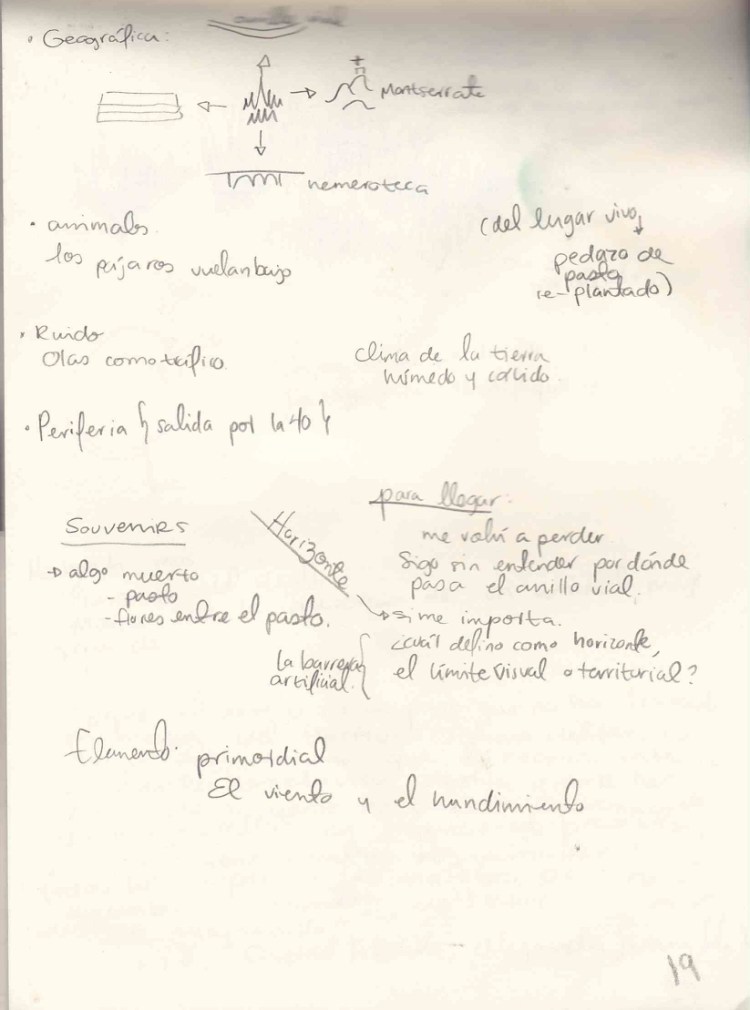 · Geográfica:
Montserrate
nemeroteca
· animals
los pájaros vuelan bajo
(del lugar vivo,
pedazo de
pasto
re-plantado)
· Ruido
Olas como tráfico
clima de la tierra
húmedo y cálido.
· Periferia { salida por la 40 }
Souvenirs
→ algo muerto
- pasto
- flores entre el pasto.
Horizonte
para llegar:
me volví a perder.
Sigo sin entender por dónde
pasa el anillo vial.
→ si me importa.
¿cuál defino como horizonte,
el límite visual o territorial?
la barrera
artificial.
Elemento: primordial
El viento y el hundimiento
19